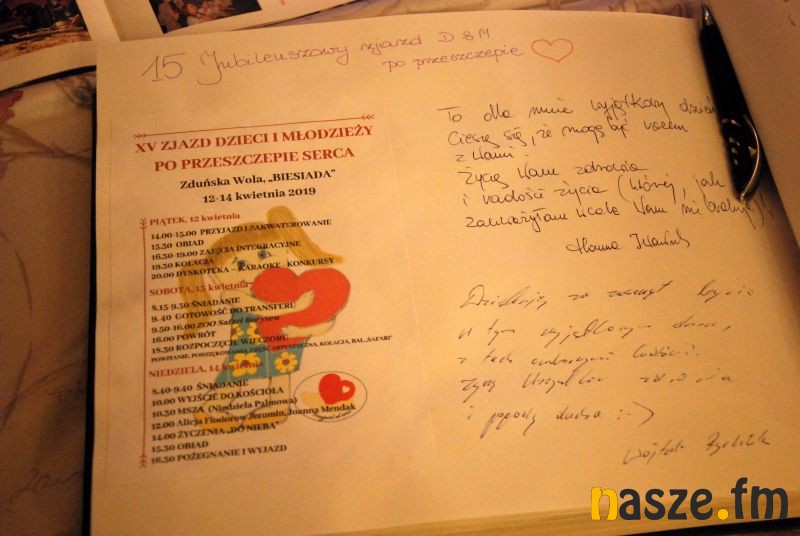 15 Jubileuszowy zjazd D&M
po przeszczepie
XV ZJAZD DZIECI I MŁODZIEŻY
PO PRZESZCZEPIE SERCA
Zduńska Wola, „BIESIADA"
12-14 kwietnia 2019
PIĄTEK, 12 kwietnia
14.00-15.00 PRZYJAZD I ZAKWATEROWANIE
15.30 OBIAD
16.30-19.00 ZAJĘCIA INTEGRACYJNE
19.30 KOLACJA
20.00 DYSKOTEKA – KARAOKE - KONKURSY
SOBOTA, 13 kwietnia
8.15-9.30 ŚNIADANIE
9.40 GOTOWOŚĆ DO TRANSFERU
9.50-16.00 ZOO Safari Borysew
16.00 POWRÓT
18.30 ROZPOCZĘCIE WIECZORU
POWITANIE, PODZIĘKOWANIA, CZĘŚĆ ARTYSTYCZNA, KOLACJA, BAL „SAFARI"
NIEDZIELA, 14 kwietnia
8.40-9.40 ŚNIADANIE
10.00 WYJŚCIE DO KOŚCIOŁA
10.30 MSZA (Niedziela Palmowa)
12.00 Alicja Fiodorow Jeromin, Joanna Mendak
14.00 ŻYCZENIA „DO NIEBA"
15.30 OBIAD
16.30 POŻEGNANIE I WYJAZD
To dla mnie wyjątkowy dzień
Cieszę się, że mogę być razem
z Wami!
Życzę Wam zdrowia
i radości życia (której, jak
zauważyłam wcale Wam nie brakuje)!
Hanna
Dziękuję za zaszczyt bycia
w tym wyjątkowym dniu,
z tech ludźmi.
Życzę Wszystkim zdrowia
i pogody ducha :-)
Wojtek
nasze.fm